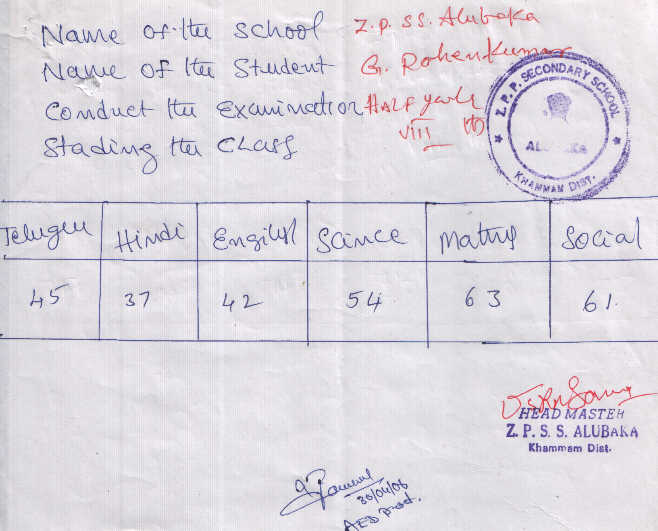 Name of the school Z.P.SS. Alubaka
Name of the Student G. Rohenkumar
Conduct the Examination HALF yearly
Stading the CLASS VIII
Z.P.P. SECONDARY SCHOOL
ALUBAKA
KHAMMAM DIST.
Telugu Hindi English Scince Maths Social
45 37 42 54 63 61
HEAD MASTER
Z. P. S. S. ALUBAKA
Khammam Dist.
30/04/06
AED Prod.